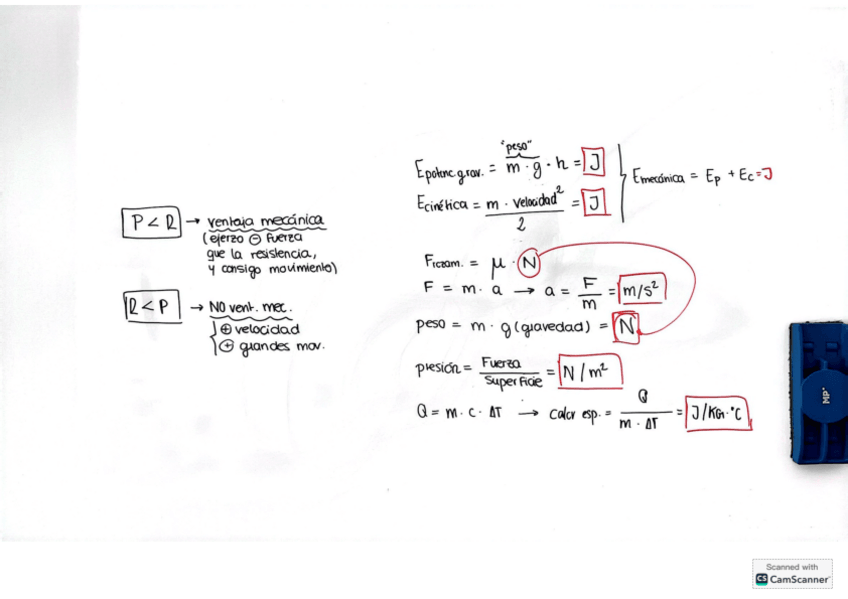 P < R → ventaja mecánica
(ejerzo ⊖ fuerza
que la resistencia,
y consigo movimiento)
R < P → NO vent. mec.
⊕ velocidad
⊕ grandes mov.
"peso"
Epotenc.grav. = m · g · h = J
Ecinética = m · velocidad² / 2 = J
Emecánica = Ep + Ec = J
Frozam. = μ · N
F = m · a → a = F / m = m/s²
peso = m · g (gravedad) = N
presión = Fuerza / Superficie = N/m²
Q = m · c · ΔT → calor esp. = Q / m · ΔT = J/KG·°C
MP
Scanned with
CS CamScanner